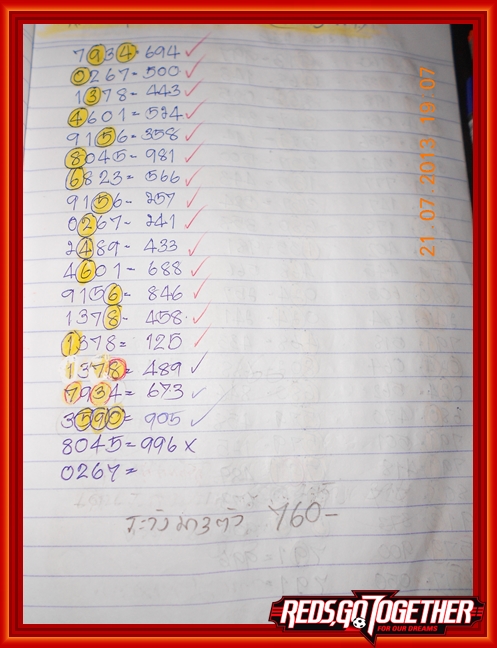 7934 - 694 ✓
0267 - 500 ✓
1378 - 443 ✓
4601 = 524 ✓
9156 - 358 ✓
8045 - 981 ✓
6823 = 566 ✓
9156 - 257 ✓
0267 - 241 ✓
2489 - 433 ✓
4601 - 688 ✓
9156 - 846 ✓
1378 - 458 ✓
1378 = 125 ✓
1378 = 489 ✓
7934 = 673 ✓
3590 = 905 ✓
8045 = 996 ×
0267 =
ระวังมา3ตัว 760-
21.07.2013 19:07
REDS,GO TOGETHER
FOR OUR DREAMS